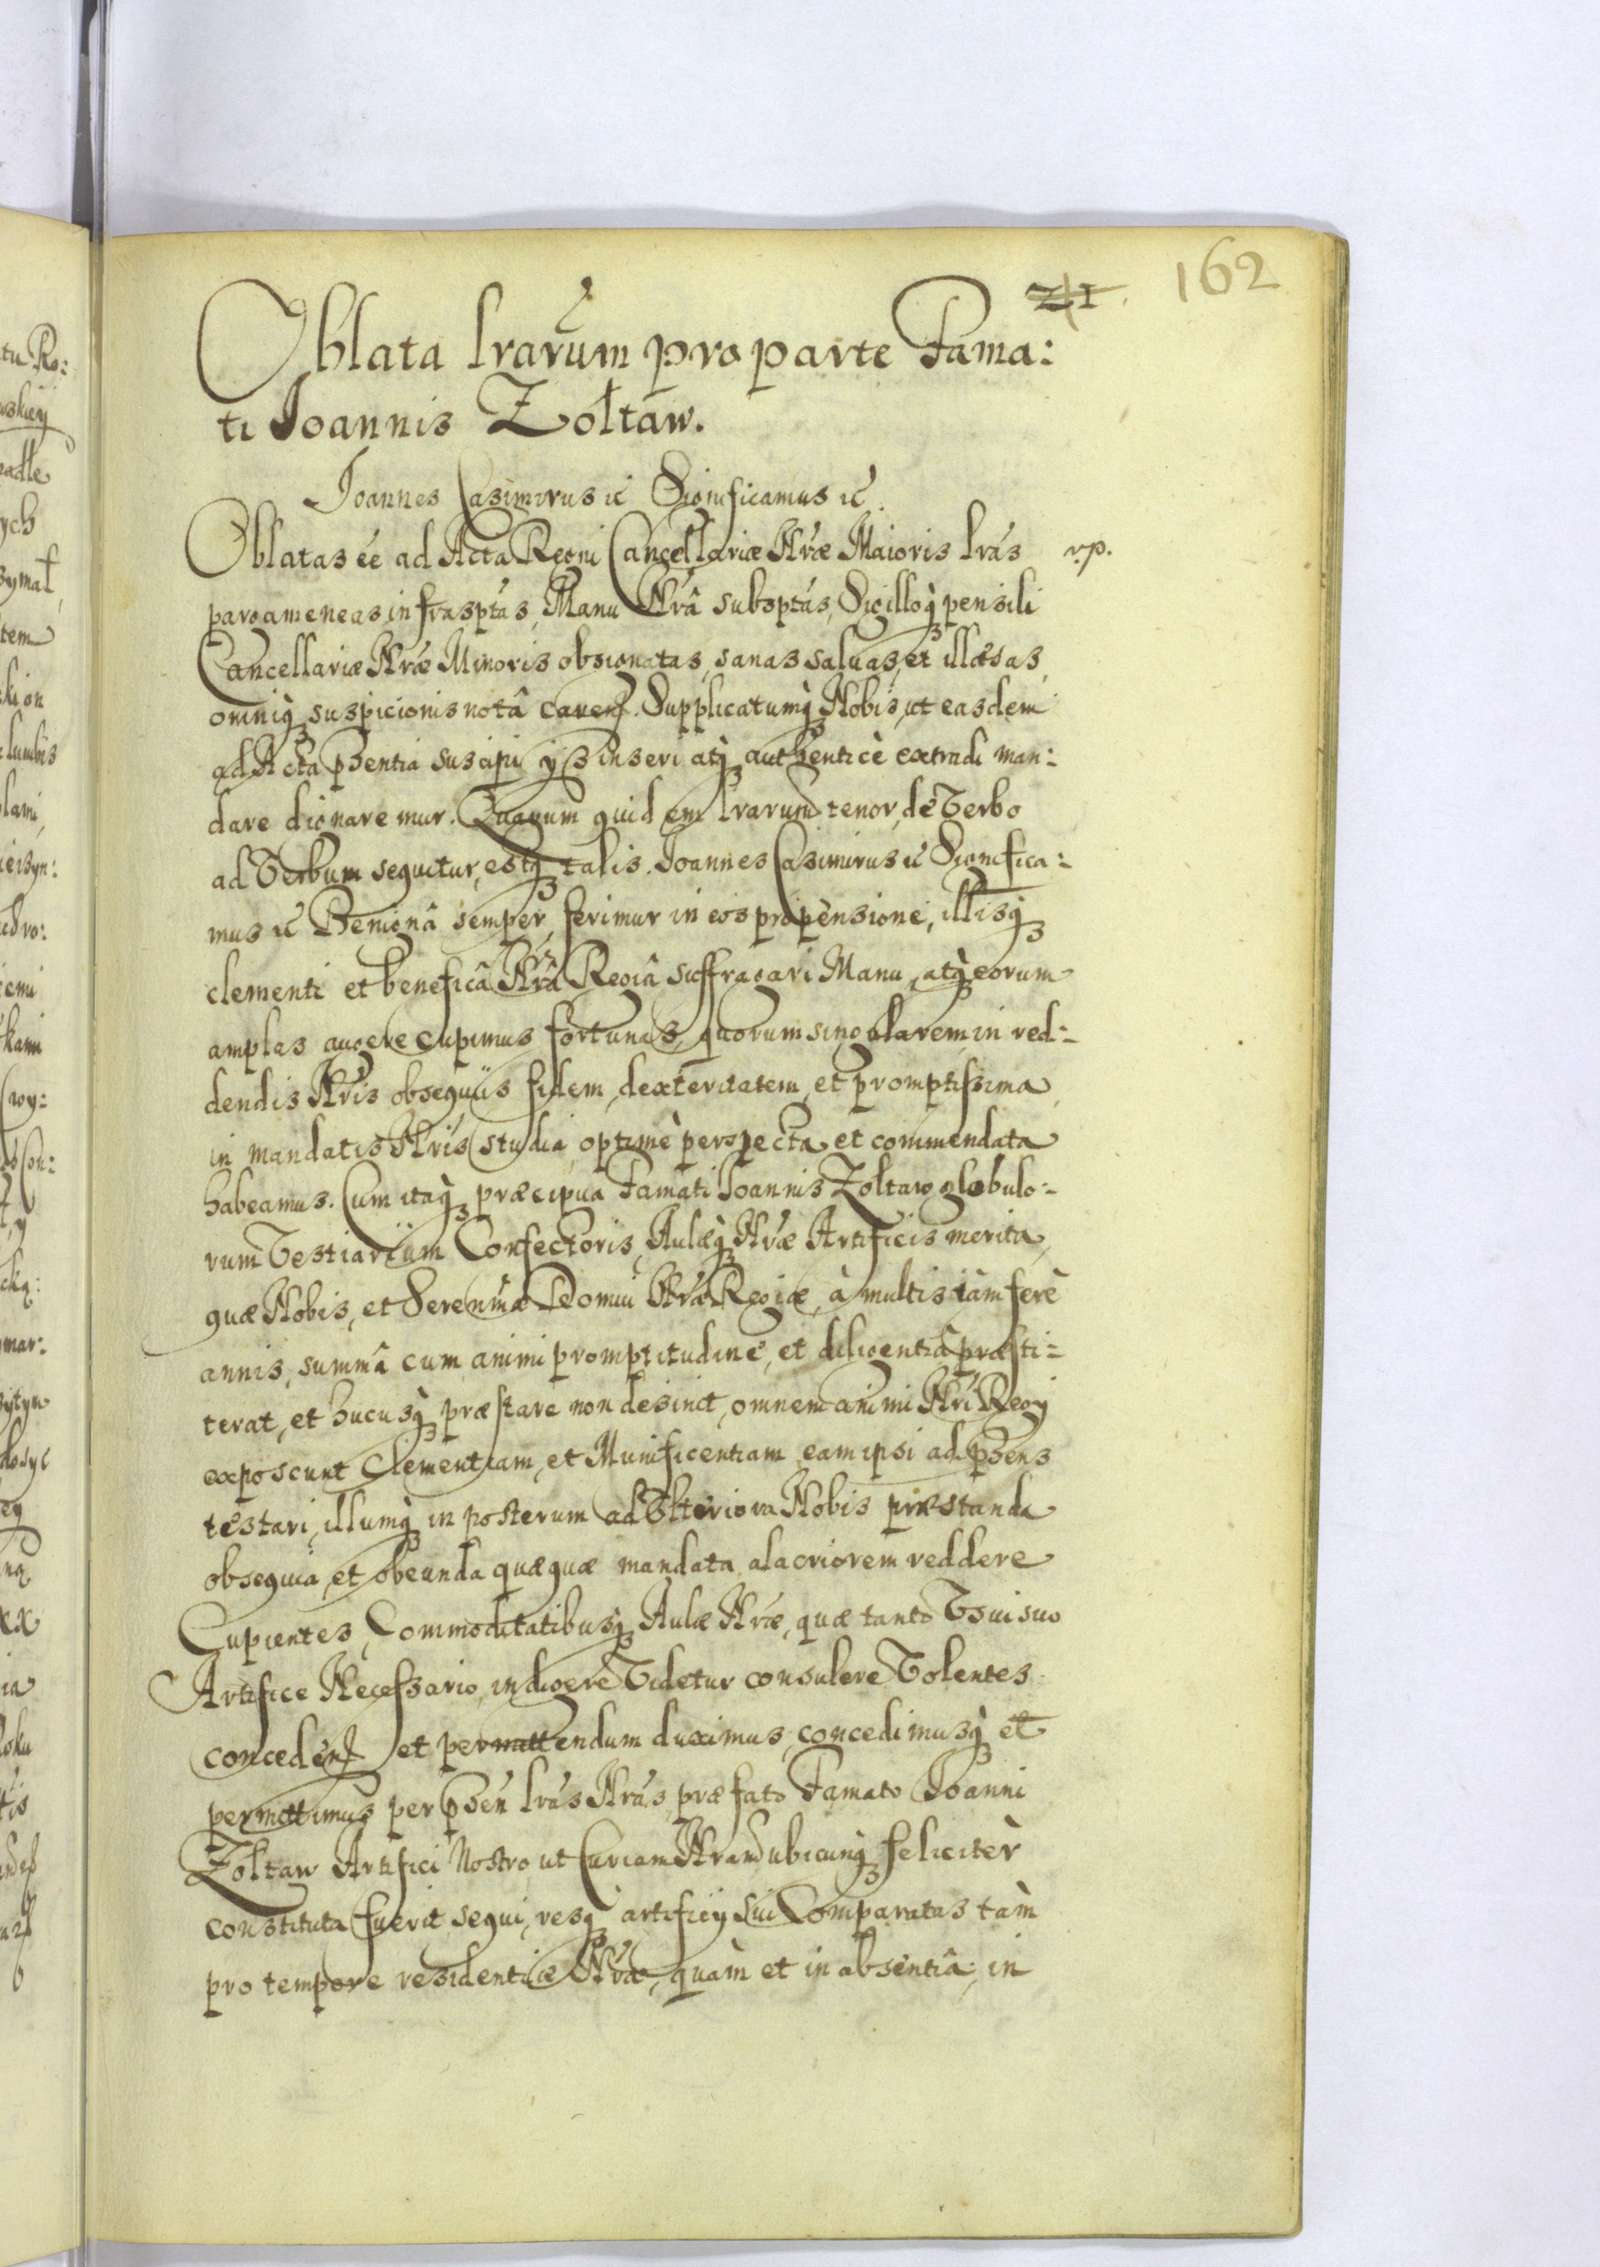 162
Oblata lrarum pro parte Fama:
ti Joannis Zołtaw.
Joannes Casimirus &c Significamus &c.
Oblatas ée ad Acta Regni Cancellariæ Nræ Maioris lrás rp.
pargameneas infrasptas, Manu Nrâ subsptas, Sigilloq̢ pensili
Cancellariæ Nræ Minoris obsignatas, sanas saluas, et illæsas,
omniq̢ suspicionis notâ caren. Supplicatumq̢ Nobis, ut easdem
ad Acta pſentia suscipi ijs inseri atq̢ authenticè extradi man:
dare dignaremur. Quarum quidem lrarum tenor, de Verbo
ad Verbum sequitur, estq̢ talis. Joannes Casimirus &c Significa:
mus &c Benignâ semper, ferimur in eos propensione, illisq̢
clementi et beneficâ Nrâ Regiâ suffragari Manu, atq̢ eorum
amplas augere cupimus fortunas, quorum singularem, in red:
dendis Nris obsequiis fidem, dexteritatem, et promptissima,
in mandatis Nris studia, optimè perspecta et commendata
habeamus. Cum itaq̢ præcipua Famati Joannis Zołtaw globulo:
rum Vestiarium Confectoris, Aulæq̢ Nræ Artificis merita,
quæ Nobis, et Serenmæ Domui Nræ Regiæ, à multis iàm ferè
annis, summâ cum animi promptitudine, et diligentiâ præsti:
terat, et hucusq̢ præstare non desinit, omnem animi Nri Regij
exposcunt Clementiam, et Munificentiam, eam ipsi ad pſens
testari, illumq̢ in posterum ad Vlteriora Nobis præstanda
obsequia, et obeunda quæquæ mandata alacriorem reddere
Cupientes, Commoditatibusq̢ Aulæ Nræ, quæ tanto Vsui suo
Artifice Necessario, indigere Videtur consulere Volentes
conceden et permittendum duximus, concedimusq̢ et
permittimus per pſen lrás Nrás, præfato Famato Joanni
Zołtaw Artifici Nostro, ut Curiam Nram ubicunq̢ feliciter
constituta fuerit sequi, resq̢ artificij sui Comparatas tàm
pro tempore residentiæ Nræ, quàm et in absentiâ, in